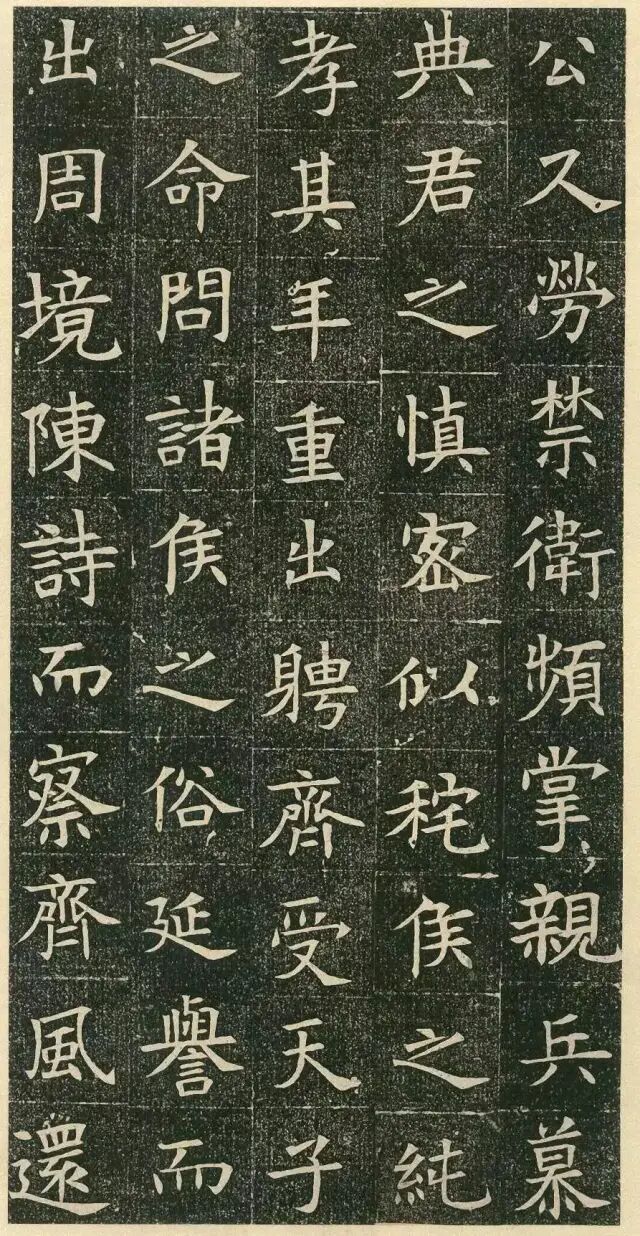 公又勞禁衛頻掌親兵慕
典君之慎密似秺侯之純
孝其年重出聘齊受天子
之命問諸侯之俗延譽而
出周境陳詩而察齊風還